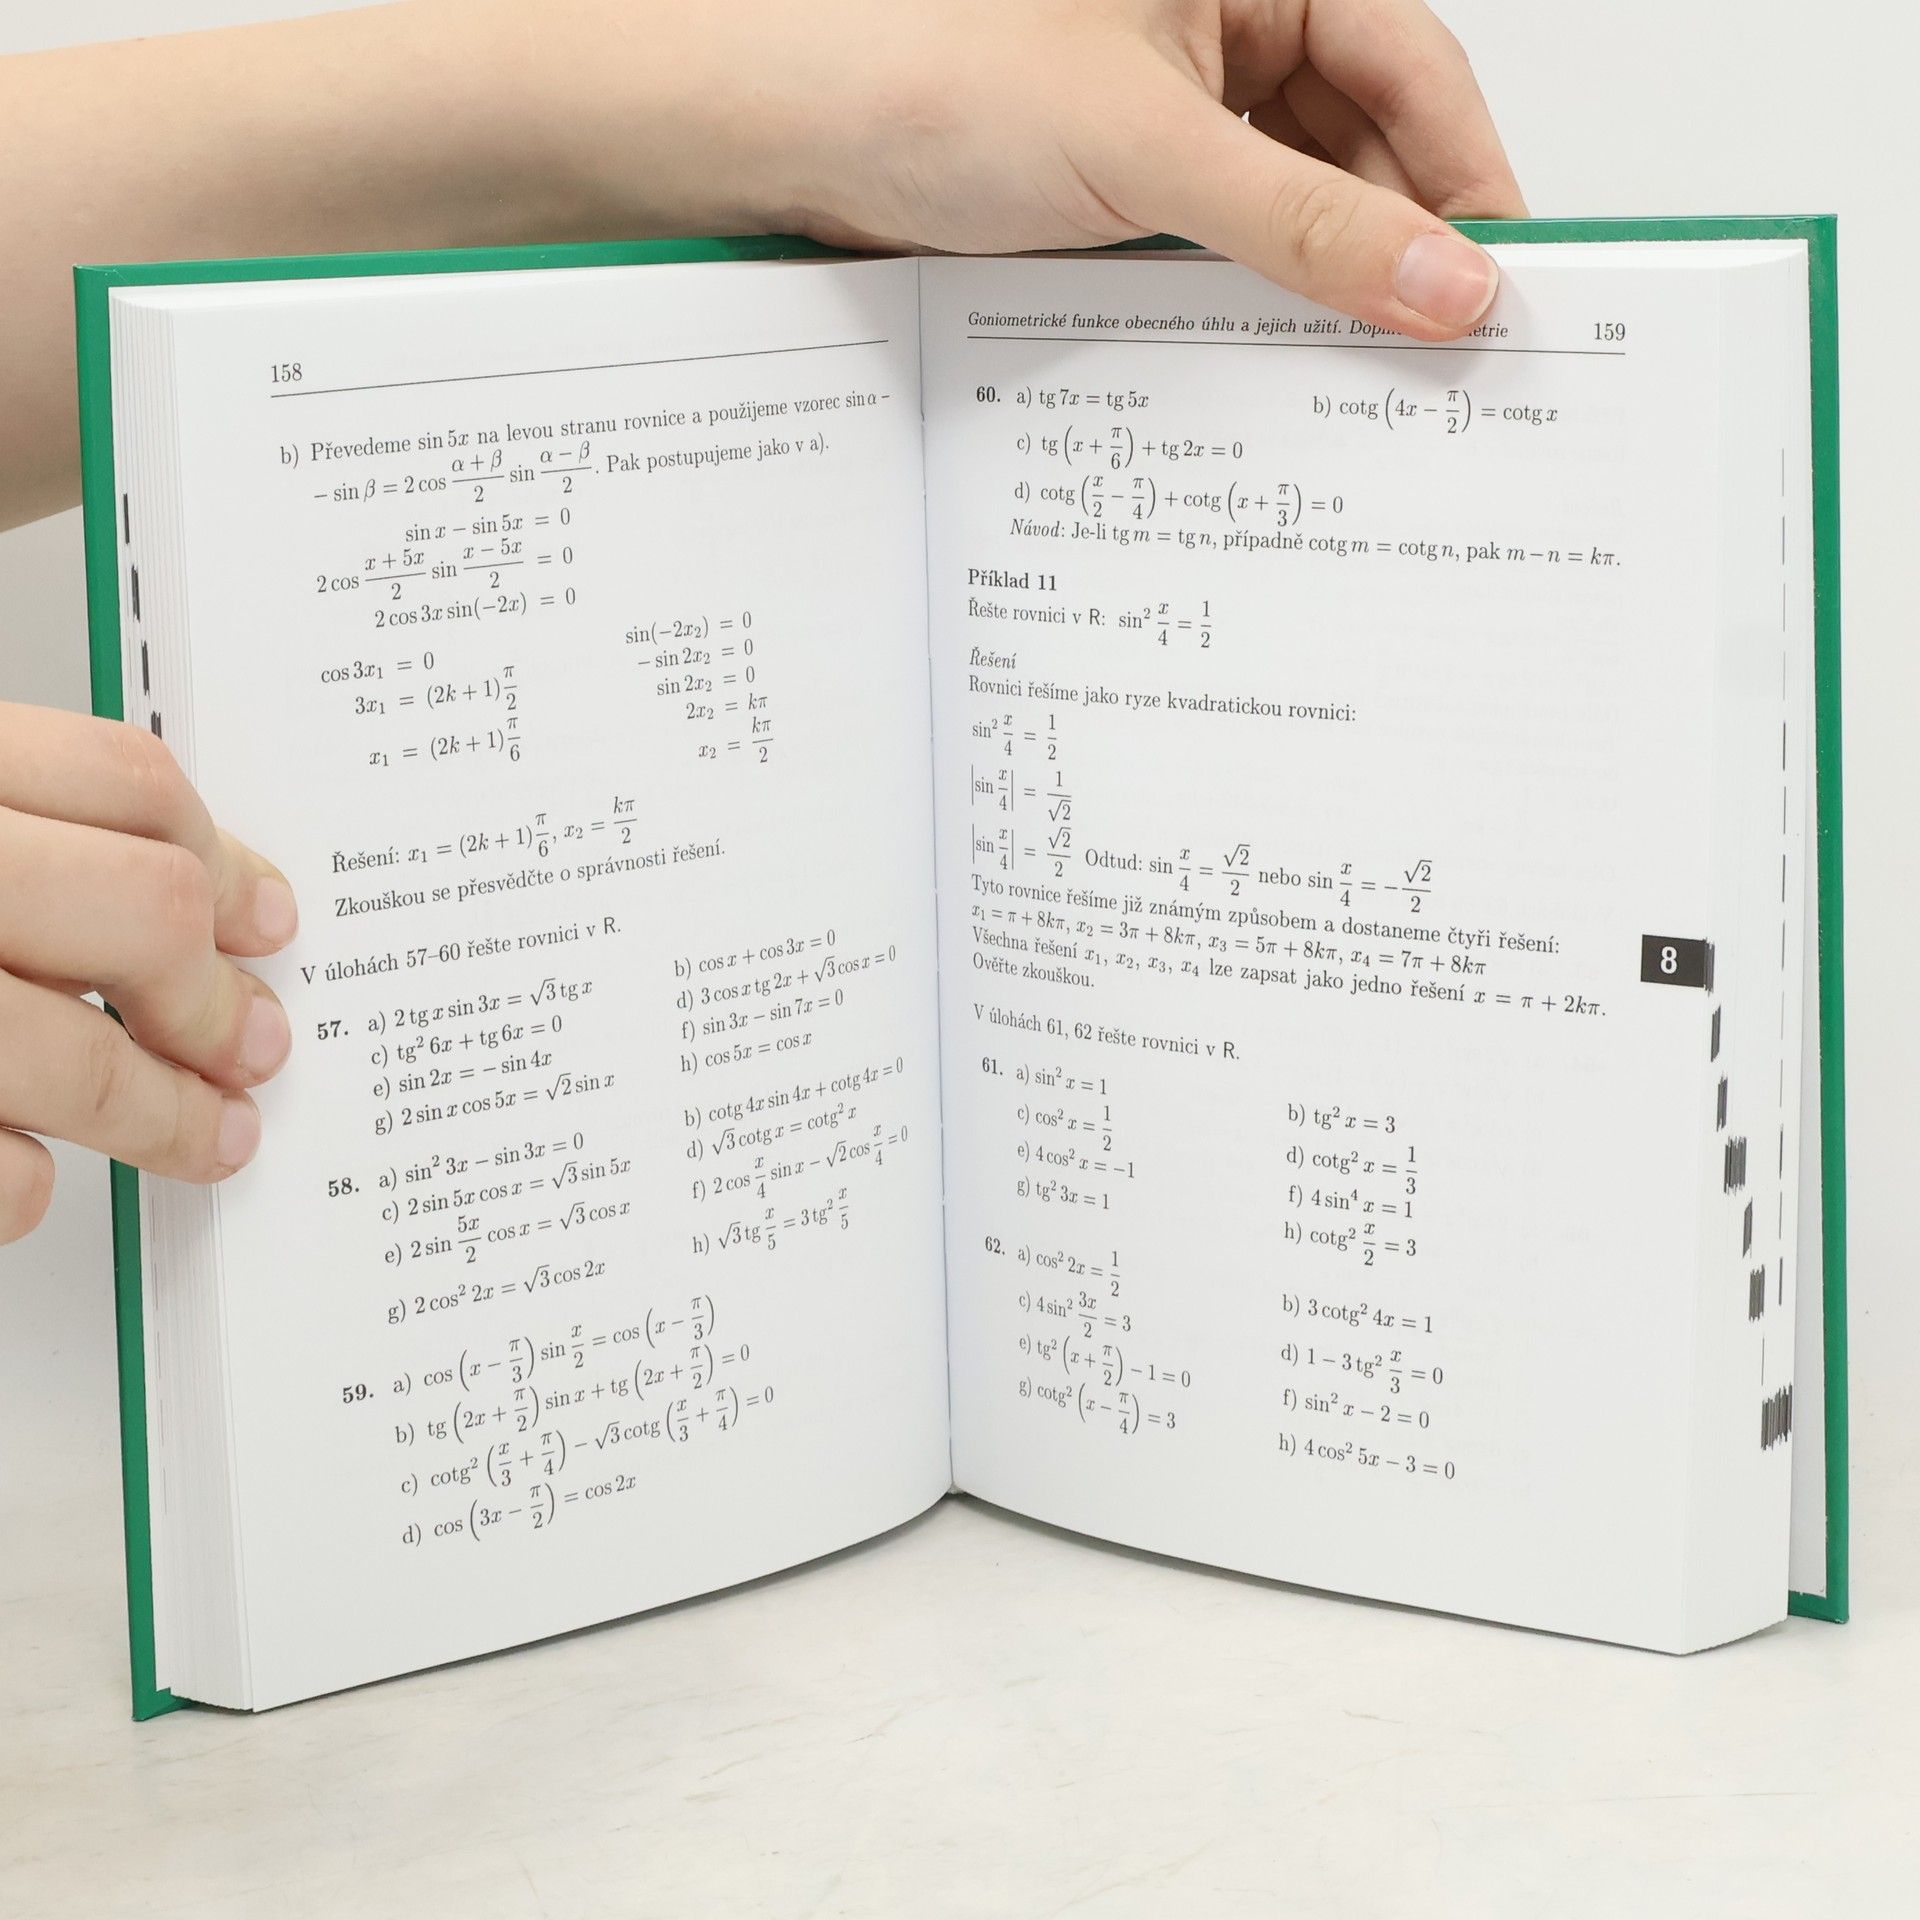 158
b) Převedeme sin 5x na levou stranu rovnice a použijeme vzorec sin α −
− sin β = 2 cos (α + β)/2 sin (α − β)/2. Pak postupujeme jako v a).
sin x − sin 5x = 0
2 cos (x + 5x)/2 sin (x − 5x)/2 = 0
2 cos 3x sin(−2x) = 0
cos 3x₁ = 0
3x₁ = (2k + 1) π/2
x₁ = (2k + 1) π/6
sin(−2x₂) = 0
− sin 2x₂ = 0
sin 2x₂ = 0
2x₂ = kπ
x₂ = kπ/2
Řešení: x₁ = (2k + 1) π/6, x₂ = kπ/2
Zkouškou se přesvědčte o správnosti řešení.
V úlohách 57–60 řešte rovnici v R.
57. a) 2 tg x sin 3x = √3 tg x b) cos x + cos 3x = 0
c) tg² 6x + tg 6x = 0 d) 3 cos x tg 2x + √3 cos x = 0
e) sin 2x = − sin 4x f) sin 3x − sin 7x = 0
g) 2 sin x cos 5x = √2 sin x h) cos 5x = cos x
58. a) sin² 3x − sin 3x = 0 b) cotg 4x sin 4x + cotg 4x = 0
c) 2 sin 5x cos x = √3 sin 5x d) √3 cotg x = cotg² x
e) 2 sin 5x/2 cos x = √3 cos x f) 2 cos x/4 sin x − √2 cos x/4 = 0
g) 2 cos² 2x = √3 cos 2x h) √3 tg x/5 = 3 tg² x/5
59. a) cos (x − π/3) sin x/2 = cos (x − π/3)
b) tg (2x + π/2) sin x + tg (2x + π/2) = 0
c) cotg² (x/3 + π/4) − √3 cotg (x/3 + π/4) = 0
d) cos (3x − π/2) = cos 2x
Goniometrické funkce obecného úhlu a jejich užití. 159
60. a) tg 7x = tg 5x b) cotg (4x − π/2) = cotg x
c) tg (x + π/6) + tg 2x = 0
d) cotg (x/2 − π/4) + cotg (x + π/3) = 0
Návod: Je-li tg m = tg n, případně cotg m = cotg n, pak m − n = kπ.
Příklad 11
Řešte rovnici v R: sin² x/4 = 1/2
Řešení
Rovnici řešíme jako ryze kvadratickou rovnici:
sin² x/4 = 1/2
|sin x/4| = 1/√2
|sin x/4| = √2/2 Odtud: sin x/4 = √2/2 nebo sin x/4 = −√2/2
Tyto rovnice řešíme již známým způsobem a dostaneme čtyři řešení:
x₁ = π + 8kπ, x₂ = 3π + 8kπ, x₃ = 5π + 8kπ, x₄ = 7π + 8kπ
Všechna řešení x₁, x₂, x₃, x₄ lze zapsat jako jedno řešení x = π + 2kπ.
Ověřte zkouškou.
8
V úlohách 61, 62 řešte rovnici v R.
61. a) sin² x = 1 b) tg² x = 3
c) cos² x = 1/2 d) cotg² x = 1/3
e) 4 cos² x = −1 f) 4 sin⁴ x = 1
g) tg² 3x = 1 h) cotg² x/2 = 3
62. a) cos² 2x = 1/2 b) 3 cotg² 4x = 1
c) 4 sin² 3x/2 = 3 d) 1 − 3 tg² x/3 = 0
e) tg² (x + π/2) − 1 = 0 f) sin² x − 2 = 0
g) cotg² (x − π/4) = 3 h) 4 cos² 5x − 3 = 0